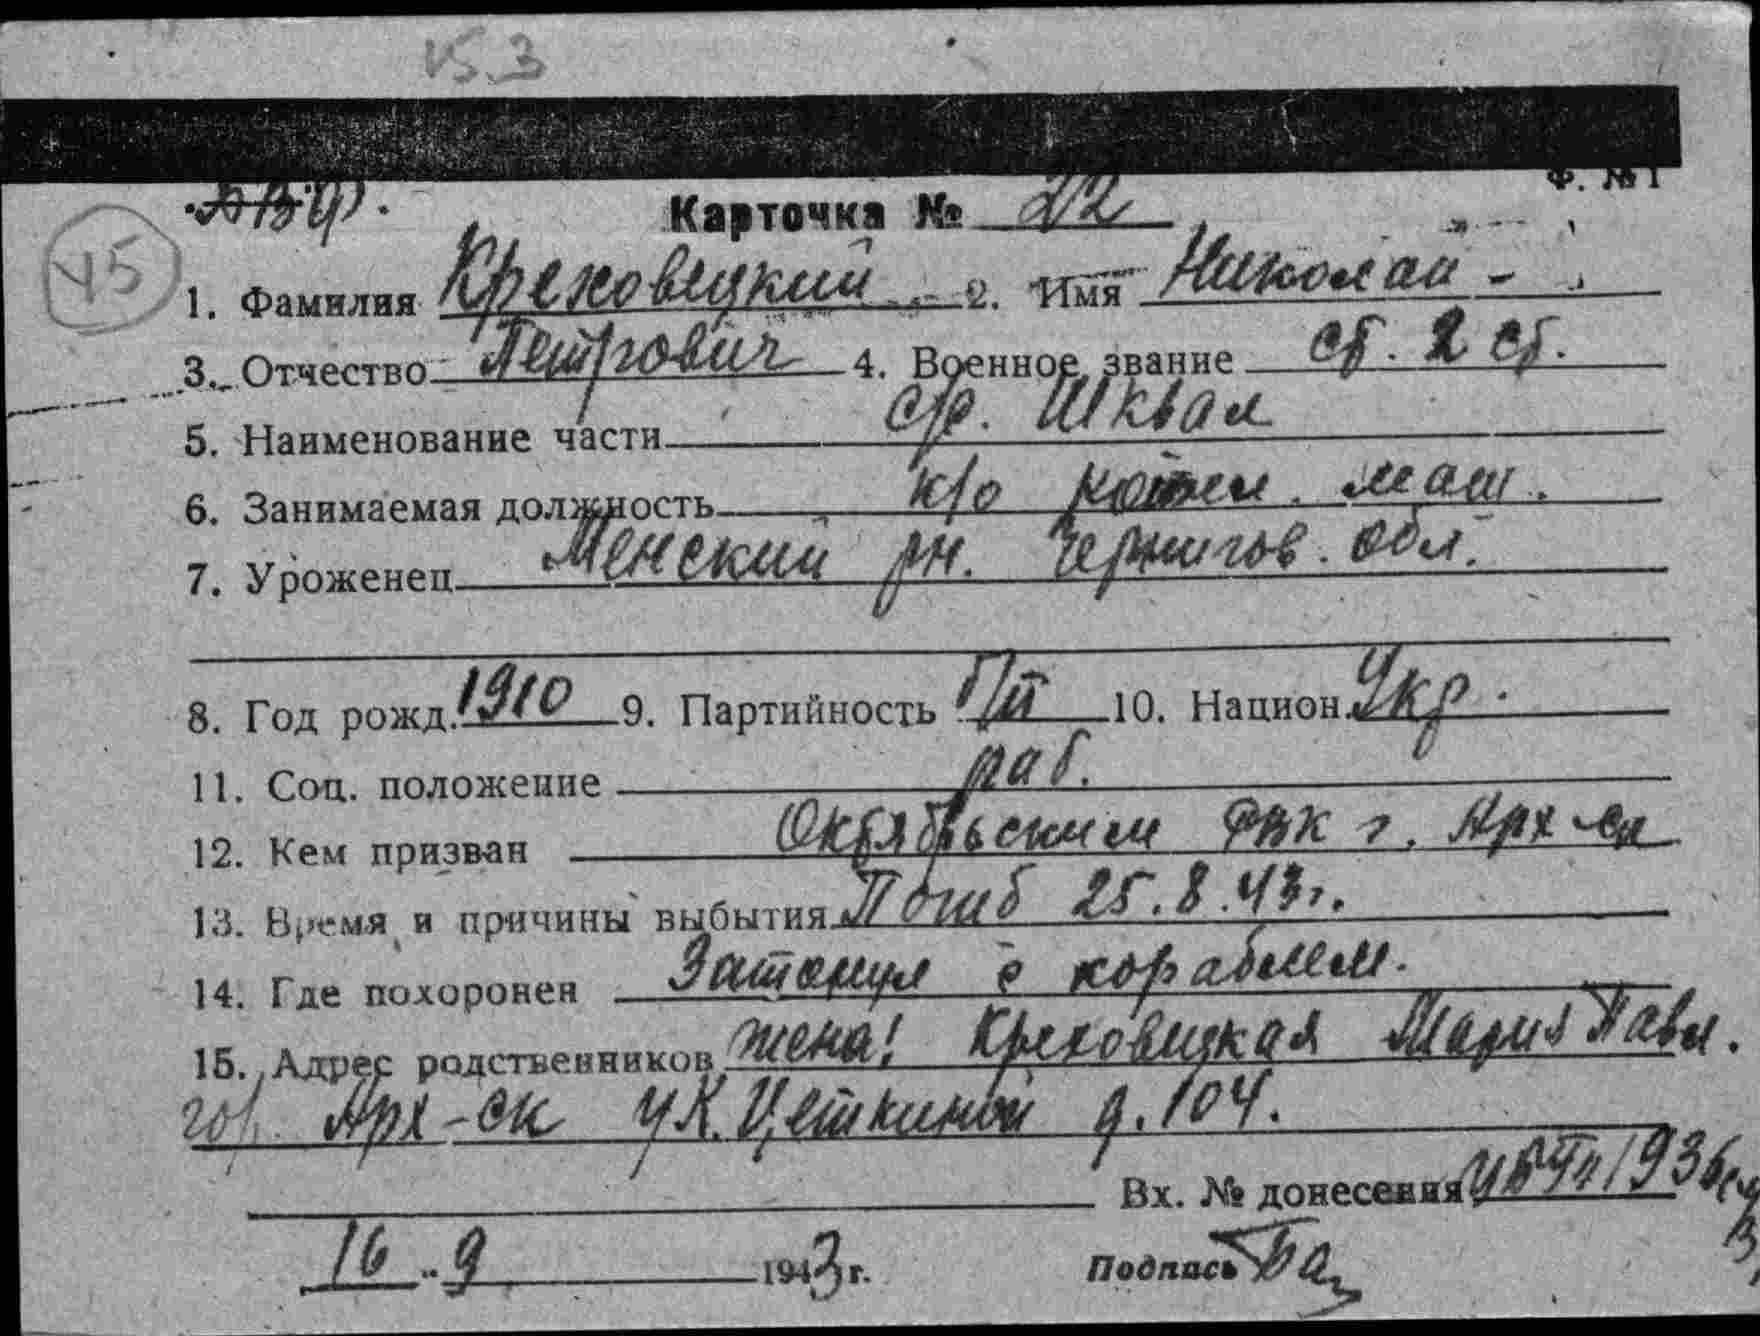 45.3
Ф. № 1
АВФ.
Карточка № 22
45
1. Фамилия Креховецкий 2. Имя Николай -
3. Отчество Петрович 4. Военное звание ст. 2 ст.
5. Наименование части с/р. Шквал
6. Занимаемая должность к/о котел. маш.
7. Уроженец Менский рн. Чернигов. обл.
8. Год рожд. 1910 9. Партийность б/п 10. Национ. Укр.
11. Соц. положение раб.
12. Кем призван Октябрьским РВК г. Арх-ск
13. Время и причины выбытия Погиб 25.8.43г.
14. Где похоронен Затонул с кораблем.
15. Адрес родственников жена: Креховецкая Мария Павл.
гор. Арх-ск у К. Цеткиной д. 104.
Вх. № донесения 1936
16.9 1943 г. Подпись